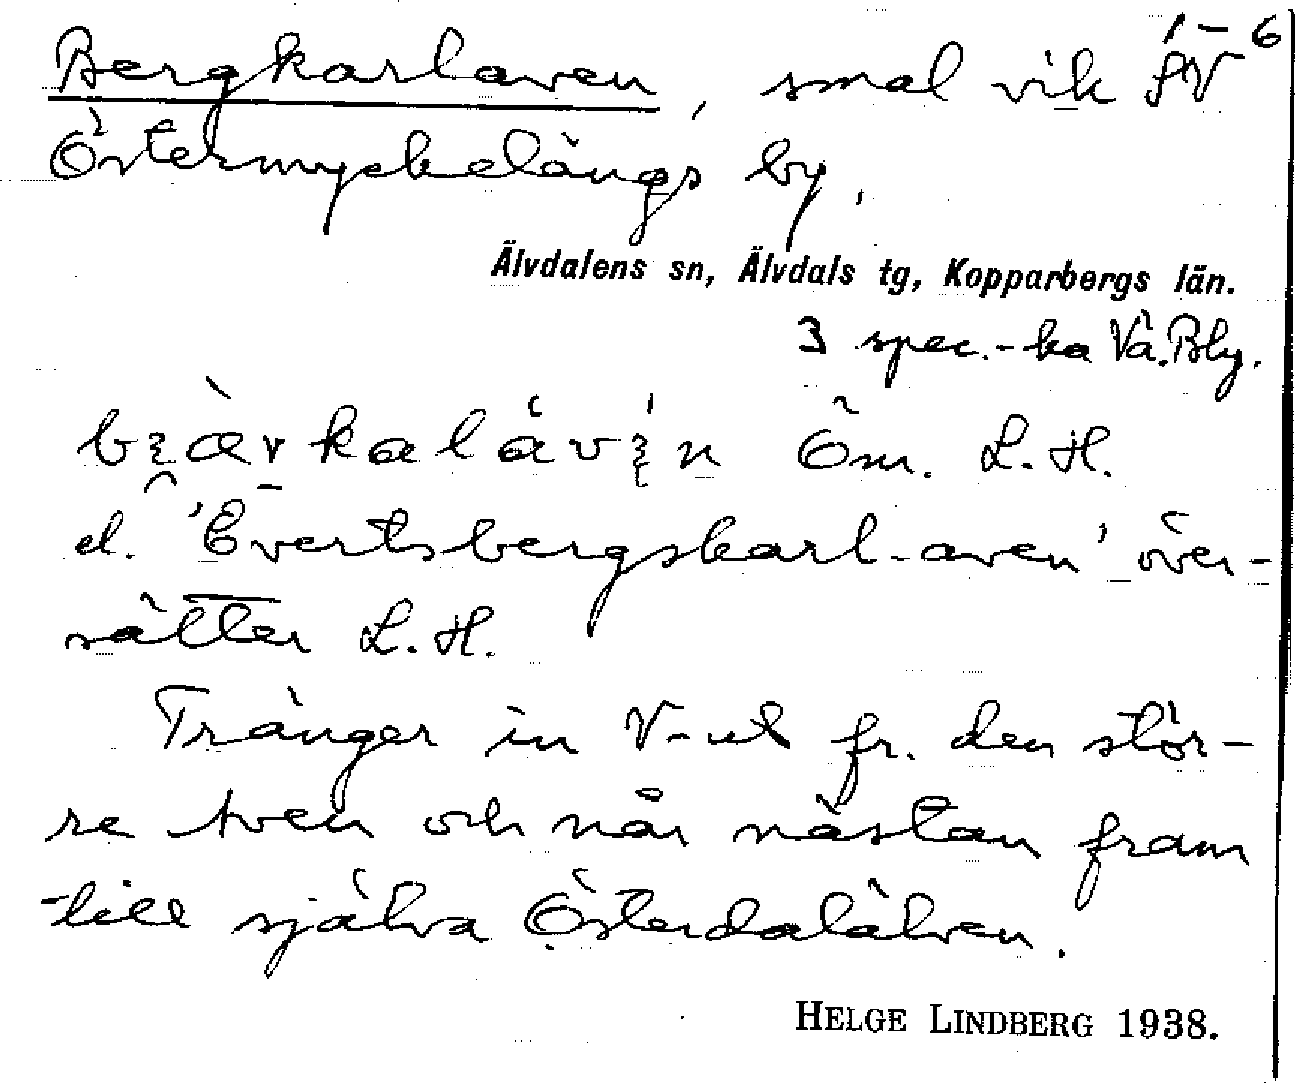 Bergkarlaven, smal vik SV 6
Östermyckelängs by.
Älvdalens sn, Älvdals tg, Kopparbergs län.
3 spec.-ka Vä.Bly.
Öm. L.H.
el. 'Evertsbergskarl-aven' över-
sätter L.H.
Tränger in V-ut fr. den stör-
re Aven och når nästan fram
till själva Österdalälven.
HELGE LINDBERG 1938.